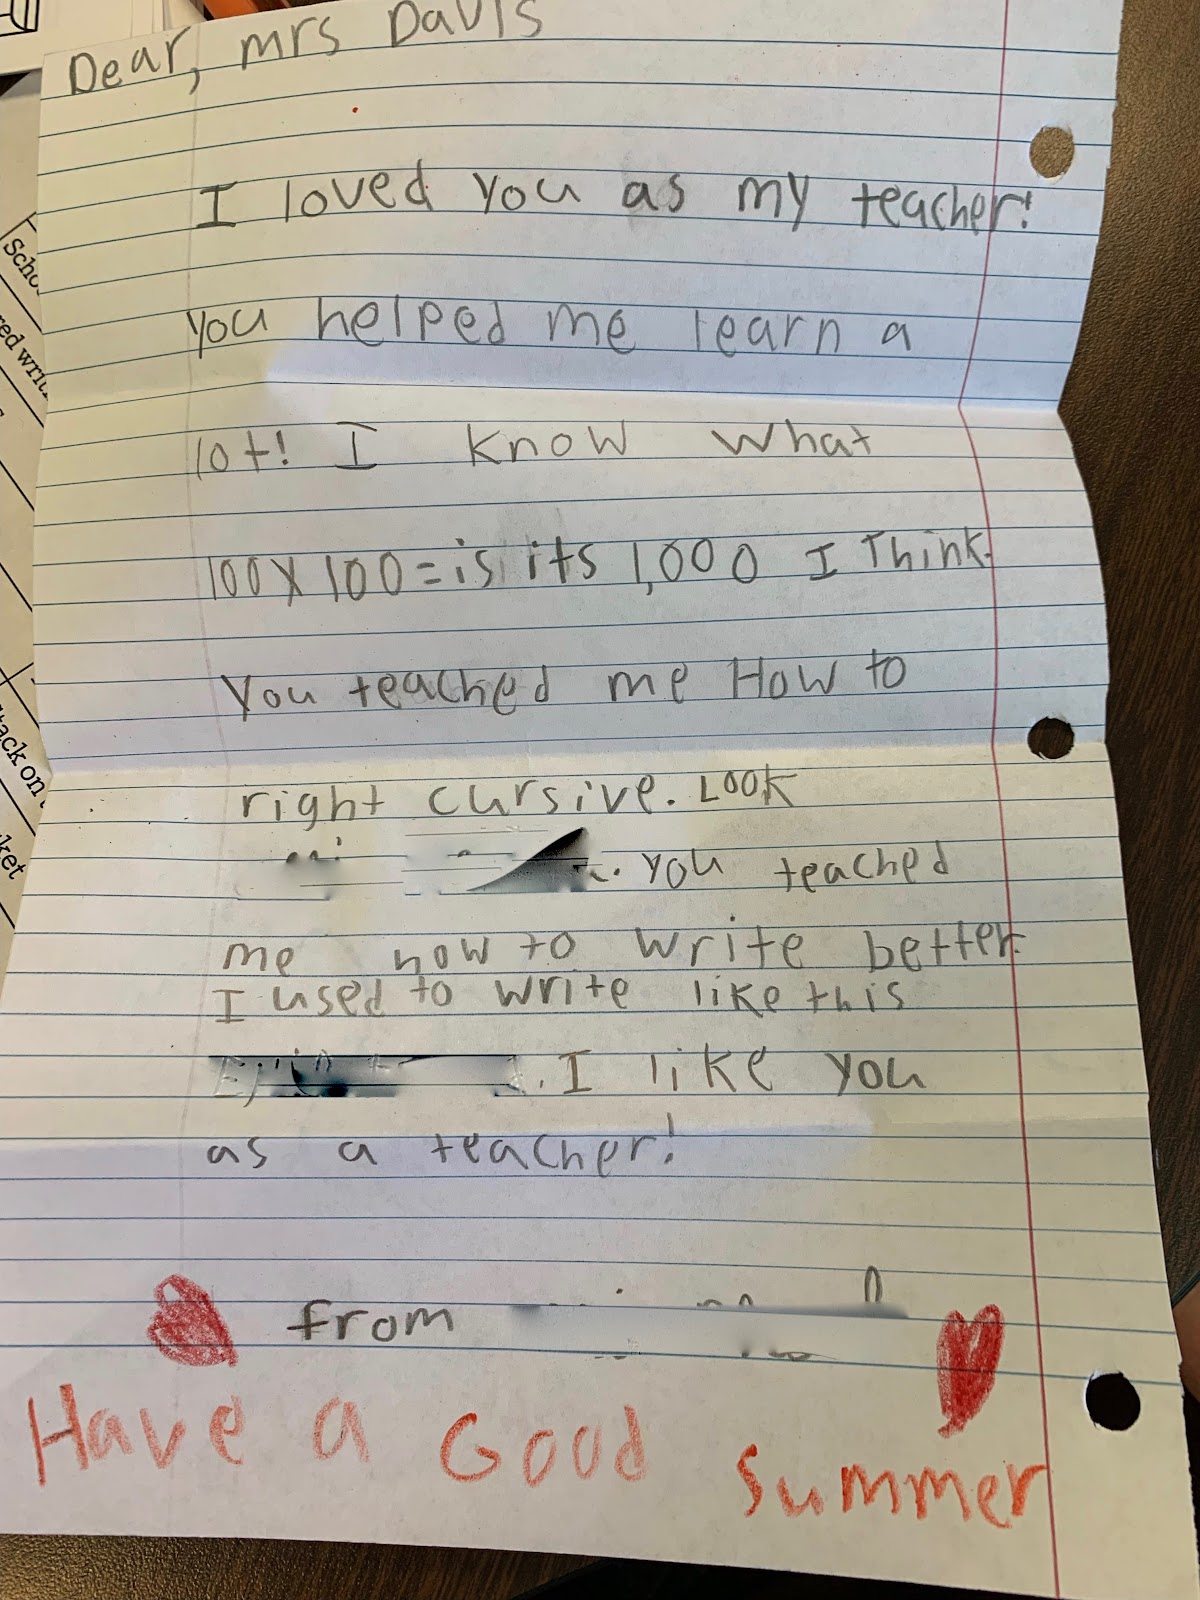 Dear, mrs Davis
I loved you as my teacher!
you helped me learn a
lot! I know what
100 x 100 = is its 1,000 I Think.
You teached me How to
right cursive. Look
. you teached
me how to write better.
I used to write like this
. I like you
as a teacher!
from
Have a Good summer
Scho
red writ
tack on
ket